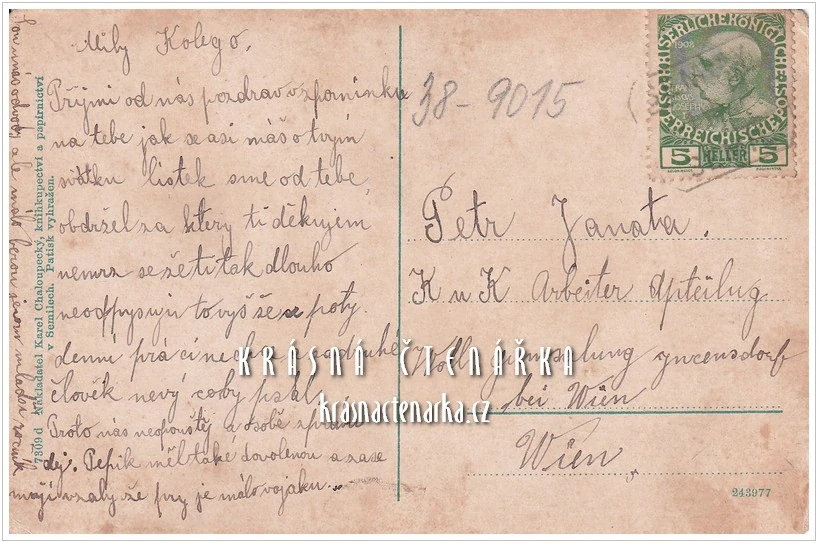 Milý Kolego,
Přijmi od nás pozdrav vzpomínku
na tebe jak se asi máš o tvým
svátku lístek sme od tebe,
obdržel za ktery ti děkujem
nemrz se že ti tak dlouho
neodpysuju to vyš še u poty
denní práci
člověk neví coby psal
Proto nás neopouštěj a osobě zprávu
dej. Pepik měl také dovolenou a zase
mají vzaly že pry je málo vojáku...
ale málo
7309 d Nakladatel Karel Chaloupecký, knihkupectví a papírnictví
v Semilech. Patisk vyhražen.
38-9015
KAISERLICHE KÖNIGLICHE
ÖSTERREICHISCHE POST
1908
FRANZ JOSEPH I
5 HELLER 5
Petr Janata.
K u K Arbeiter Apteilug
bei Wien
Wien
243977
KRÁSNÁ ČTENÁŘKA
krasnactenarka.cz